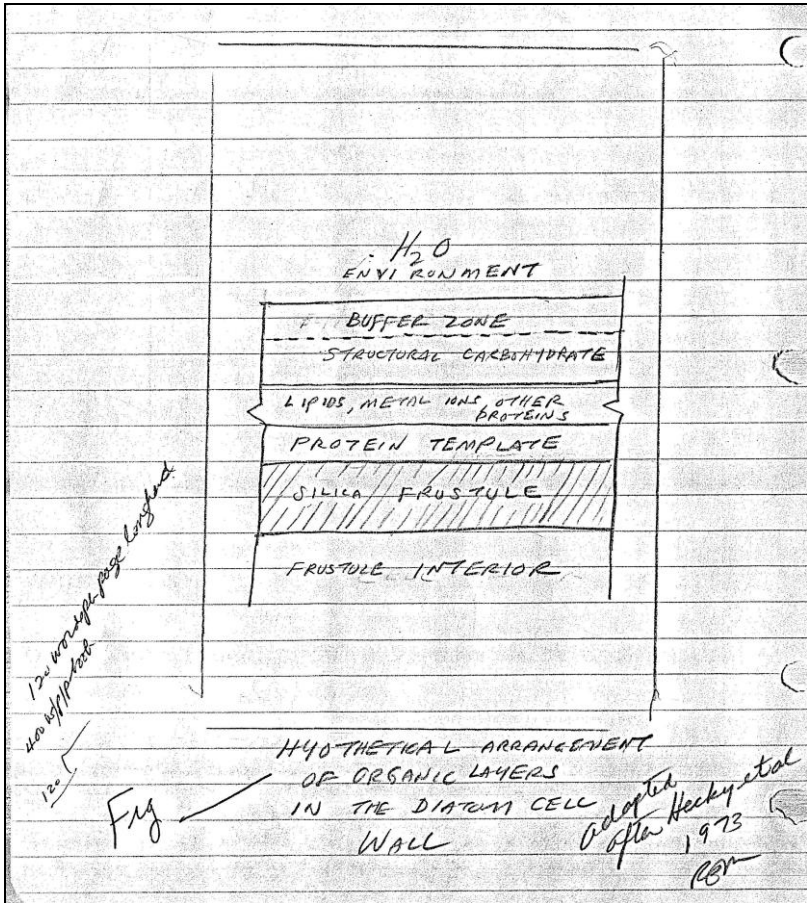 H2O
ENVIRONMENT
BUFFER ZONE
STRUCTURAL CARBOHYDRATE
LIPIDS, METAL IONS, OTHER
PROTEINS
PROTEIN TEMPLATE
SILICA FRUSTULE
FRUSTULE INTERIOR
120 words per page longhand
400
120
Fig
HYOTHETICAL ARRANGEMENT
OF ORGANIC LAYERS
IN THE DIATOM CELL
WALL
adapted
after Hecky et al
1973